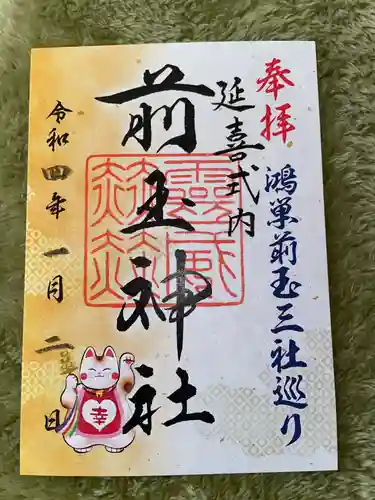 奉拝
鴻巣前玉三社巡り
延喜式内
前玉神社
令和四年一月二日
幸